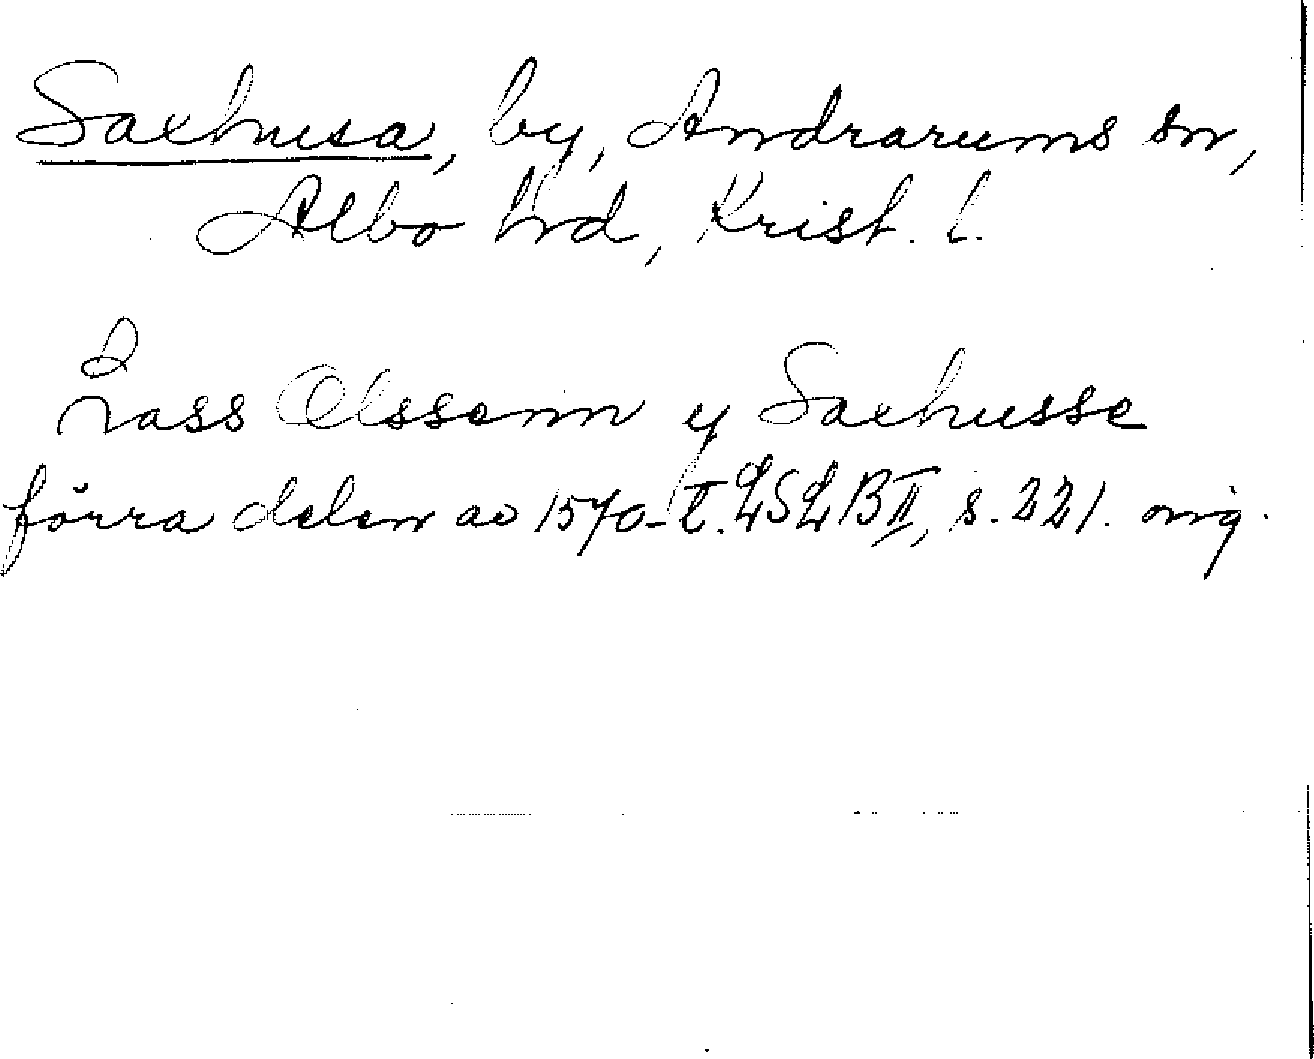 Saxhusa, by, Andrarums sn,
Albo hrd, Krist. l.
Lass Olssenn y Saxhusse
förra delen av 1570-t. LSLB II, s. 221. orig.